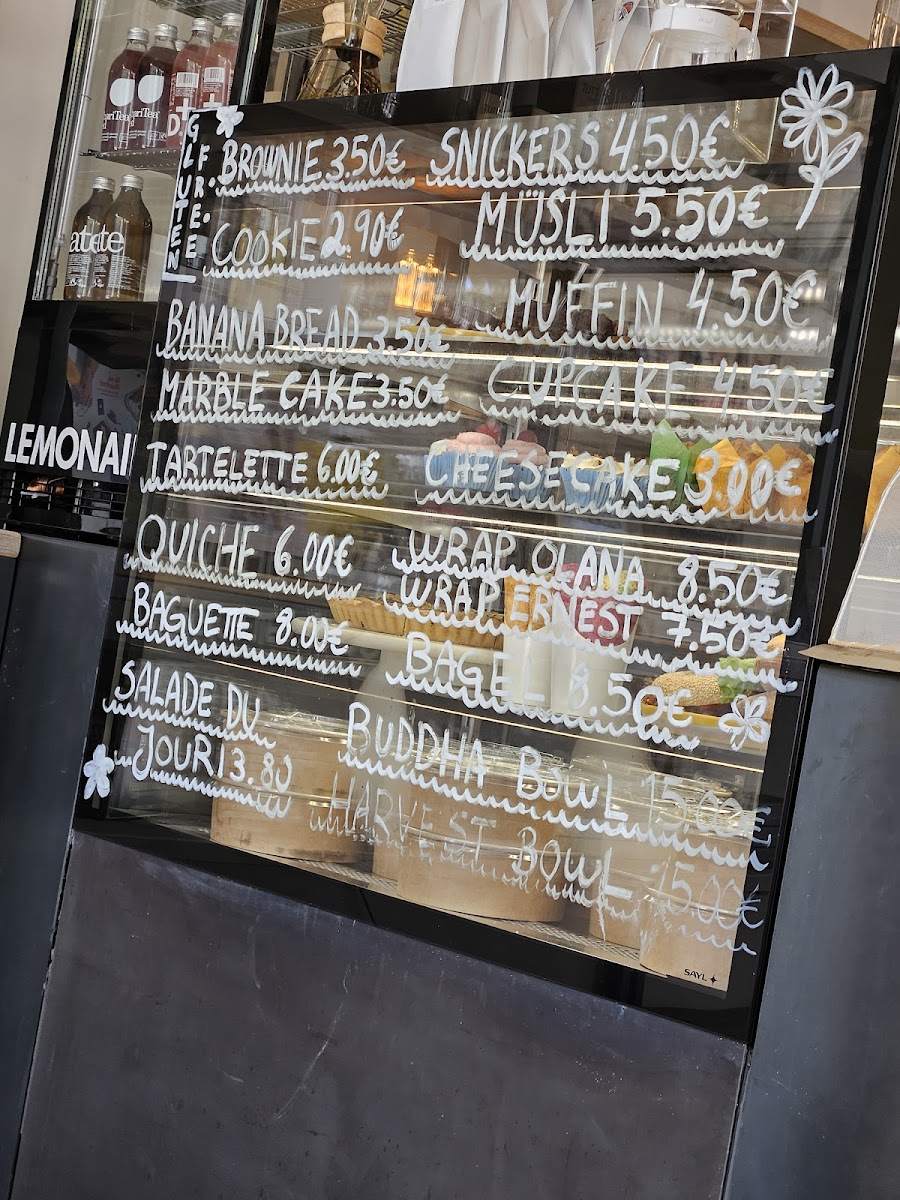 GLUTEN
FREE
BROWNIE 3.50€
COOKIE 2.90€
BANANA BREAD 3.50€
MARBLE CAKE 3.50€
TARTELETTE 6.00€
QUICHE 6.00€
BAGUETTE 8.00€
SALADE DU
JOUR 13.80
SNICKERS 4.50€
MÜSLI 5.50€
MUFFIN 4.50€
CUPCAKE 4.50€
CHEESECAKE 3.00€
WRAP OLANA 8.50€
WRAP ERNEST 7.50€
BAGEL 8.50€
BUDDHA BOWL 15.00€
HARVEST BOWL 15.00€
LEMONAI
SAYL